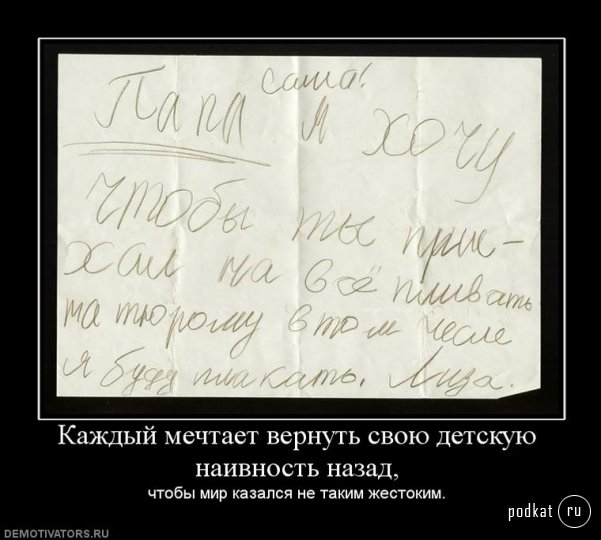 саша!
Папа я хочу
чтобы ты прие-
хал на всё пливать
на тюрому в том числе
я буду плакать. Лиза.
Каждый мечтает вернуть свою детскую
наивность назад,
чтобы мир казался не таким жестоким.
podkat ru
DEMOTIVATORS.RU